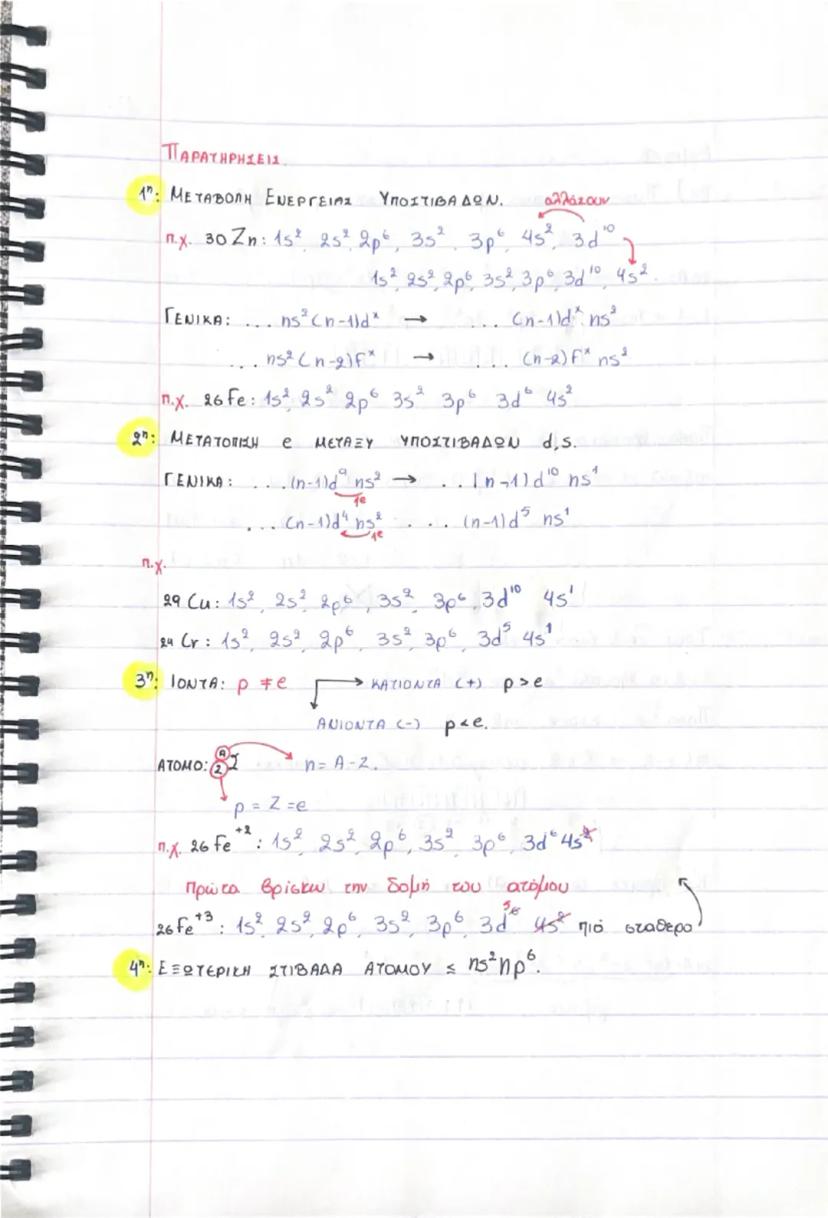 ΠΑΡΑΤΗΡΗΣΕΙΣ.
1η: ΜΕΤΑΒΟΛΗ ΕΝΕΡΓΕΙΑΣ ΥΠΟΣΤΙΒΑΔΩΝ. αλλάζουν
π.χ. 30 Zn: 1s² 2s² 2p⁶, 3s², 3p⁶, 4s², 3d¹⁰
1s², 2s², 2p⁶, 3s², 3p⁶, 3d¹⁰, 4s².
ΓΕΝΙΚΑ: ... ns² (n-1)dˣ → ... (n-1)dˣ ns²
... ns² (n-2)fˣ → ... (n-2)fˣ ns²
π.χ. 26 Fe: 1s², 2s², 2p⁶ 3s² 3p⁶ 3d⁶ 4s²
2η: ΜΕΤΑΤΟΠΙΣΗ e ΜΕΤΑΞΥ ΥΠΟΣΤΙΒΑΔΩΝ d,s.
ΓΕΝΙΚΑ: ... (n-1)d⁹ ns² → ... (n-1)d¹⁰ ns¹
1e
... (n-1)d⁴ ns² ... (n-1)d⁵ ns¹
1e
π.χ.
29 Cu: 1s², 2s², 2p⁶, 3s², 3p⁶, 3d¹⁰ 4s¹
24 Cr: 1s², 2s², 2p⁶, 3s², 3p⁶, 3d⁵ 4s¹
3η: ΙΟΝΤΑ: p ≠ e → ΚΑΤΙΟΝΤΑ (+) p > e
ΑΝΙΟΝΤΑ (-) p < e.
ΑΤΟΜΟ: A Z Σ n = A - Z.
p = Z = e
π.χ. 26 Fe⁺²: 1s², 2s², 2p⁶, 3s², 3p⁶, 3d⁶ 4s²
Πρώτα βρίσκω την δομή του ατόμου
26 Fe⁺³: 1s², 2s², 2p⁶, 3s², 3p⁶, 3d⁵ 4s² πιό σταθερο
4η: ΕΞΩΤΕΡΙΚΗ ΣΤΙΒΑΔΑ ΑΤΟΜΟΥ ≤ ns²np⁶.